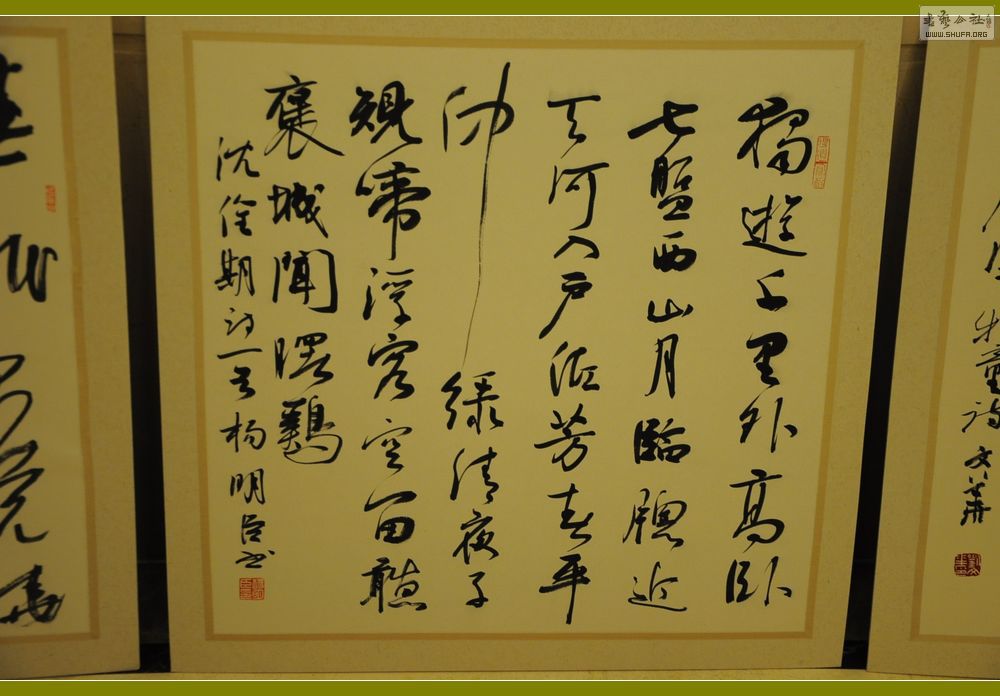 獨遊千里外高卧
七盤西山月臨牕近
天河入户低芳春平
仲緑清夜子
規啼浮客空留聽
褒城聞曙鷄
沈佺期詩一首楊明臣書
牧童詩
書藝公社
WWW.SHUFA.ORG